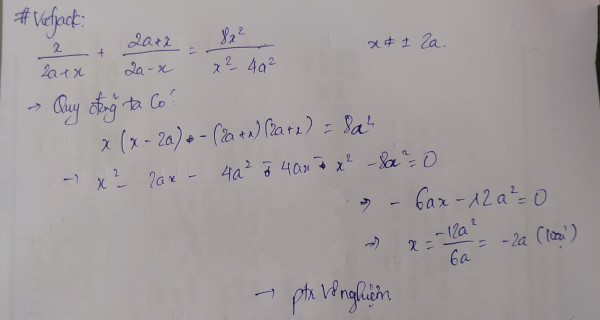 # Vietjack:
x/(2a+x) + (2a+x)/(2a-x) = 8x²/(x²-4a²) x ≠ ± 2a.
→ Quy đồng ta có:
x (x-2a) - (2a+x)(2a+x) = 8a²
→ x² - 2ax - 4a² - 4ax - x² - 8a² = 0
⇒ - 6ax - 12a² = 0
⇒ x = -12a²/6a = -2a (loại)
→ ptr vô nghiệm